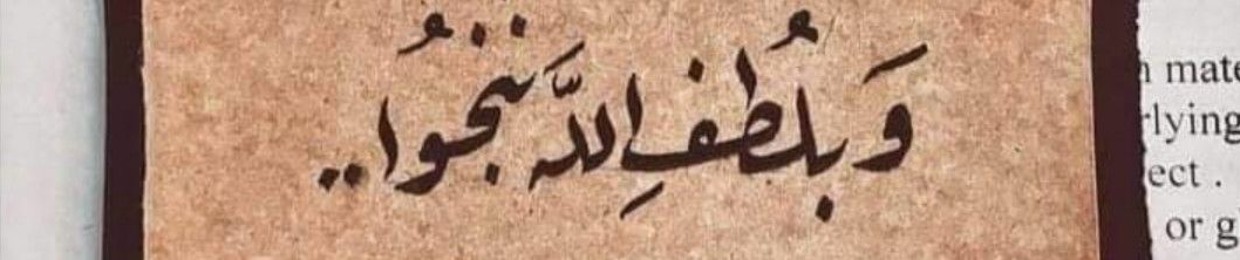 وَ بلُطفِ اللّه نَنجُوا ..
mate
rlying
ect .
or g